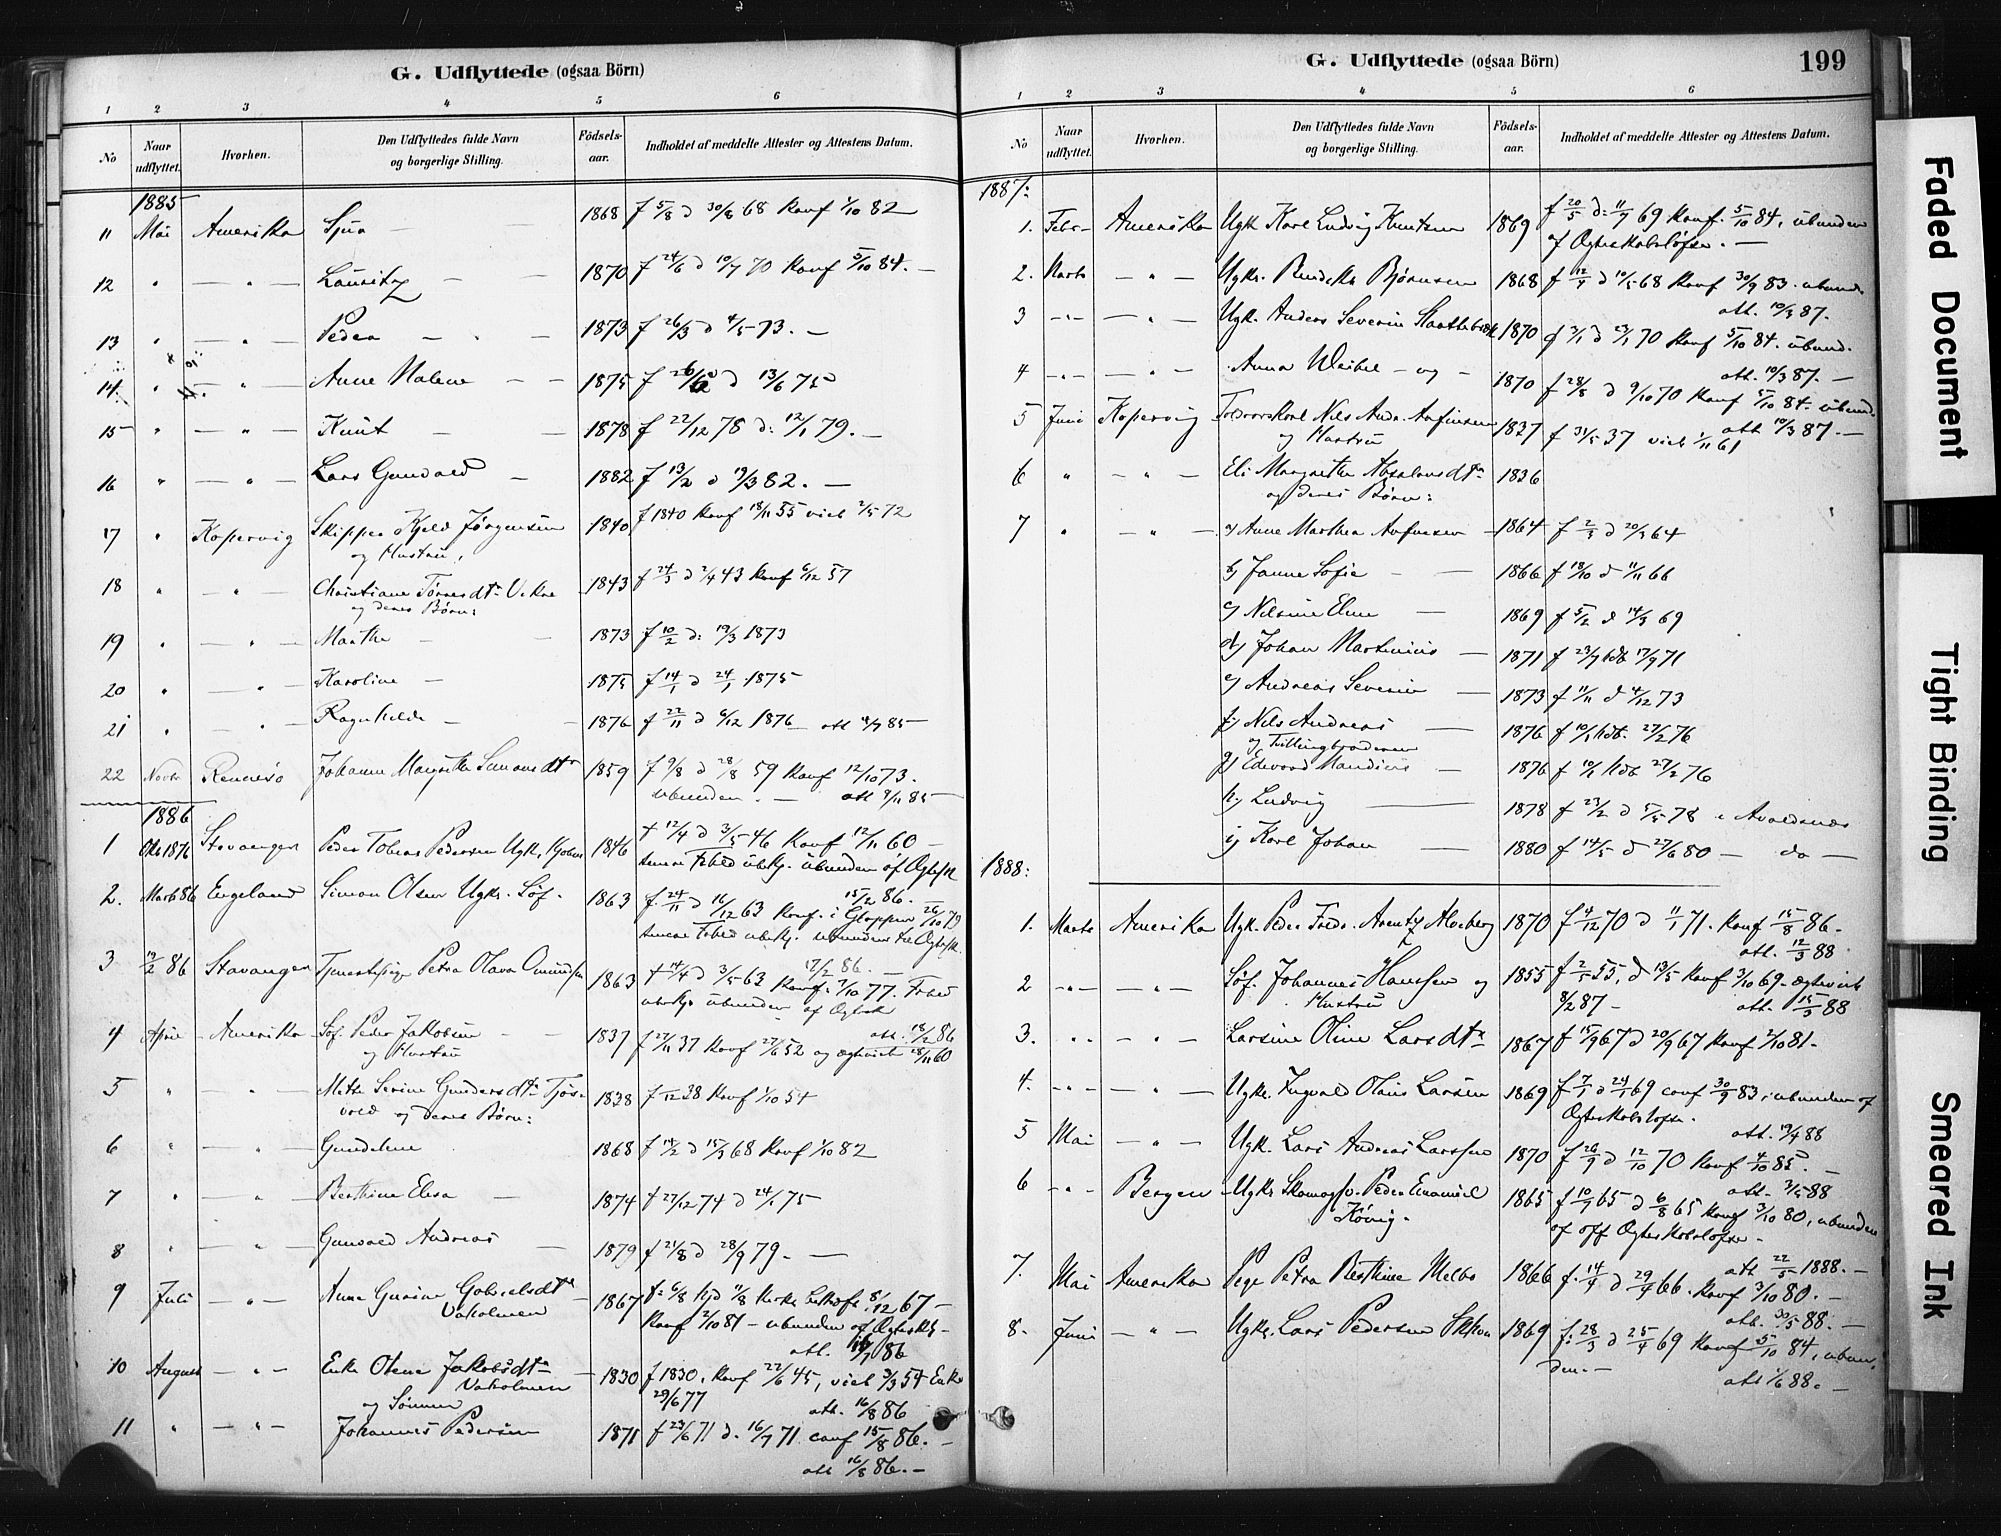 G. Udflyttede (ogsaa Börn)
1 2 3 4 5 6
No Naar udflyttet. Hvorhen. Den Udflyttedes fulde Navn og borgerlige Stilling. Födsels-aar. Indholdet af meddelte Attester og Attestens Datum.
1885
11 Mai Amerika 1868 f 5/8 d 30/8 68 Konf 1/10 82
12 " — " — Lauritz — 1870 f 24/6 d 10/7 70 Konf 5/10 84. —
13 " — " — Peder — 1873 f 26/3 d 4/5 73. —
14 " — " — Anne Malene — — 1875 d 13/6 75
15 " — " — Knut — — 1878 f 22/12 78 d: 12/1 79. —
16 " — " — Lars Gunvald — 1882 f 13/2 d 19/3 82. —
17 " Kopervig Skipper Kjeld Jørgensen og Hustru, 1840 f 1840 Konf 18/11 55 viet 2/5 72
18 " — " — Christiane Tørresdtr og deres Børn: 1843 f 24/3 d 2/4 43 Konf 6/12 57
19 " — " — Marthe — — 1873 f 10/2 d: 19/3 1873
20 " — " — Karoline — 1875 f 14/1 d 24/1 1875
21 " — " — Ragnhilde — 1876 f 22/11 d 6/12 1876 —
22 Novbr Rennesø Johanne Margrethe Simonsdtr 1859 f 9/8 d 28/8 59 Konf 12/10 73.
ubunden. — att 9/11 85 —
1886
1 Okt 1876 Stavanger Peder Tobias Pedersen Ugk. 1846 f 12/4 d 3/5 46 Konf 12/11 60 —
2. Marts 86 Engeland Simon Olsen Ugkr. Søf. 1863 15/2 86.
f 24/11 d 16/12 63 Konf. i Gloppen 26/10 79
3 19/2 86 Stavanger Petra Olava 1863 17/2 86. —
f 14/4 d 3/5 63 Konf. 7/10 77.
4 April — Amerika Søf. Peder Jakobsen og Hustru 1837 att. 18/2 86
f 27/11 37 Konf 27/6 52 og ægteviet 28/11 60
5 " — " — Mette Serine Gundersdtr og deres Børn: 1838 f /12 38 Konf 1/10 54
6 " — " — Gundelene 1868 f 14/2 d 15/3 68 Konf 1/10 82
7 " — " — Berthine Elisa — 1874 f 27/12 74 d 24/1 75
8 " — " — Gunvald Andreas — 1879 f 21/8 d 28/9 79. —
9 Juli — " — Anne Gurine Gabrielsdtr Vaholmen 1867 f: 6/8 hjd 11/8 67 —
Konf 2/10 81 — ubunden af Ægtesk. —
86
10 August — " — Enke Olene Jakobsdtr Vaholmen og Sønnen 1830 f 1830. Konf 22/6 45, viet 3/3 54 Enke
29/6 77 att. 16/8 86
11 " — " — Johannes Pedersen 1871 f 23/6 71 d. 16/7 71 conf 15/8 86. —
att 16/8 86. —
G. Udflyttede (ogsaa Börn) 199
1 2 3 4 5 6
No Naar udflyttet. Hvorhen. Den Udflyttedes fulde Navn og borgerlige Stilling. Födsels-aar. Indholdet af meddelte Attester og Attestens Datum.
1887:
1. Febr — Amerika Ugk. Karl Ludvig Knutsen 1869 f 20/5 d: 11/7 69 Konf. 5/10 84, ubunden
af Ægteskabsløfte. —
2. Marts — " — Ugkr. Bjørnsen 1868 f 12/4 d 10/5 68 Konf 30/9 83. ubund.
att. 10/3 87.
3 — " — — " — Ugk. Anders Severin 1870 70 Konf 5/10 84. ubund.
4 — " — — " — Anna — og — 1870 att. 10/3 87. —
f 28/8 d 9/10 70 Konf 5/10 84. ubund.
att 10/3 87. —
5 Juni Kopervig Nils Andr. Arfinsen og Hustru 1837 f 31/5 37 viet 1/11 61
6 " — " — Eli Margrethe Absalonsdtr og deres Børn: 1836
7 " — " — a) Anne Marthea Arfinsen — 1864 f 2/3 d 20/3 64
b) Janne Sofie — — 1866 f 18/10 d 11/11 66
c) Nilsine Eline — 1869 f 5/2 d 14/3 69
d) Johan Martinius — 1871 f 23/7 hdb 17/9 71
e) Andreas Severin — 1873 f 11/11 d 4/12 73
f) Nils Andreas — og Tvillingbroderen 1876 f 10/1 hdb. 27/2 76
g) Edvard Mandius — 1876 f 10/1 hdb 27/2 76
h) Ludvig — 1878 f 23/2 d 5/5 78 i Avaldsnes
i) Karl Johan — 1880 f 14/5 d 27/6 80 — do —
1888:
1. Marts Amerika Ugk. Peder Fredr. Arentz 1870 f 4/12 70 d 11/1 71. Konf 15/8 86.
att. 12/3 88
2 — " — — " — Søf. Johannes Hansen og Hustru 1855 f 2/5 55, d 13/5 Konf 3/10 69. Ægteviet
8/2 87 — att. 15/3 88
3. " — " — Larsine Oline Larsdtr 1867 f 15/9 67 d 20/9 67 Konf 2/10 81.
4. — " — — " — Ugkr. Ingvald Olaus Larsen 1869 69 conf 30/9 83, ubunden af
Ægteskabsløfte. att. 19/4 88
5 Mai — " — Ugk. Lars Andreas Larssen 1870 f 26/9 d 12/10 70 Konf 4/10 85. —
att. 3/5 88
6 — " — Bergen Ugkr Skomagsv. Peder Emanuel 1865 f 10/7 65 d 6/8 65 Konf 3/10 80, ubunden
af off Ægteskabsløfte. —
att 22/5 1888. —
7. Mai Amerika Pige Petra Berthine Melbo 1866 f. 14/4 d 29/4 66. Konf 3/10 80. —
att. 30/5 88. —
8. Juni — " — Ugkr. Lars Pedersen 1869 f: 28/3 d 25/4 69 Konf 5/10 84, ubun-
den. — att 1/6 88. —
Faded Document
Tight Binding
Smeared Ink